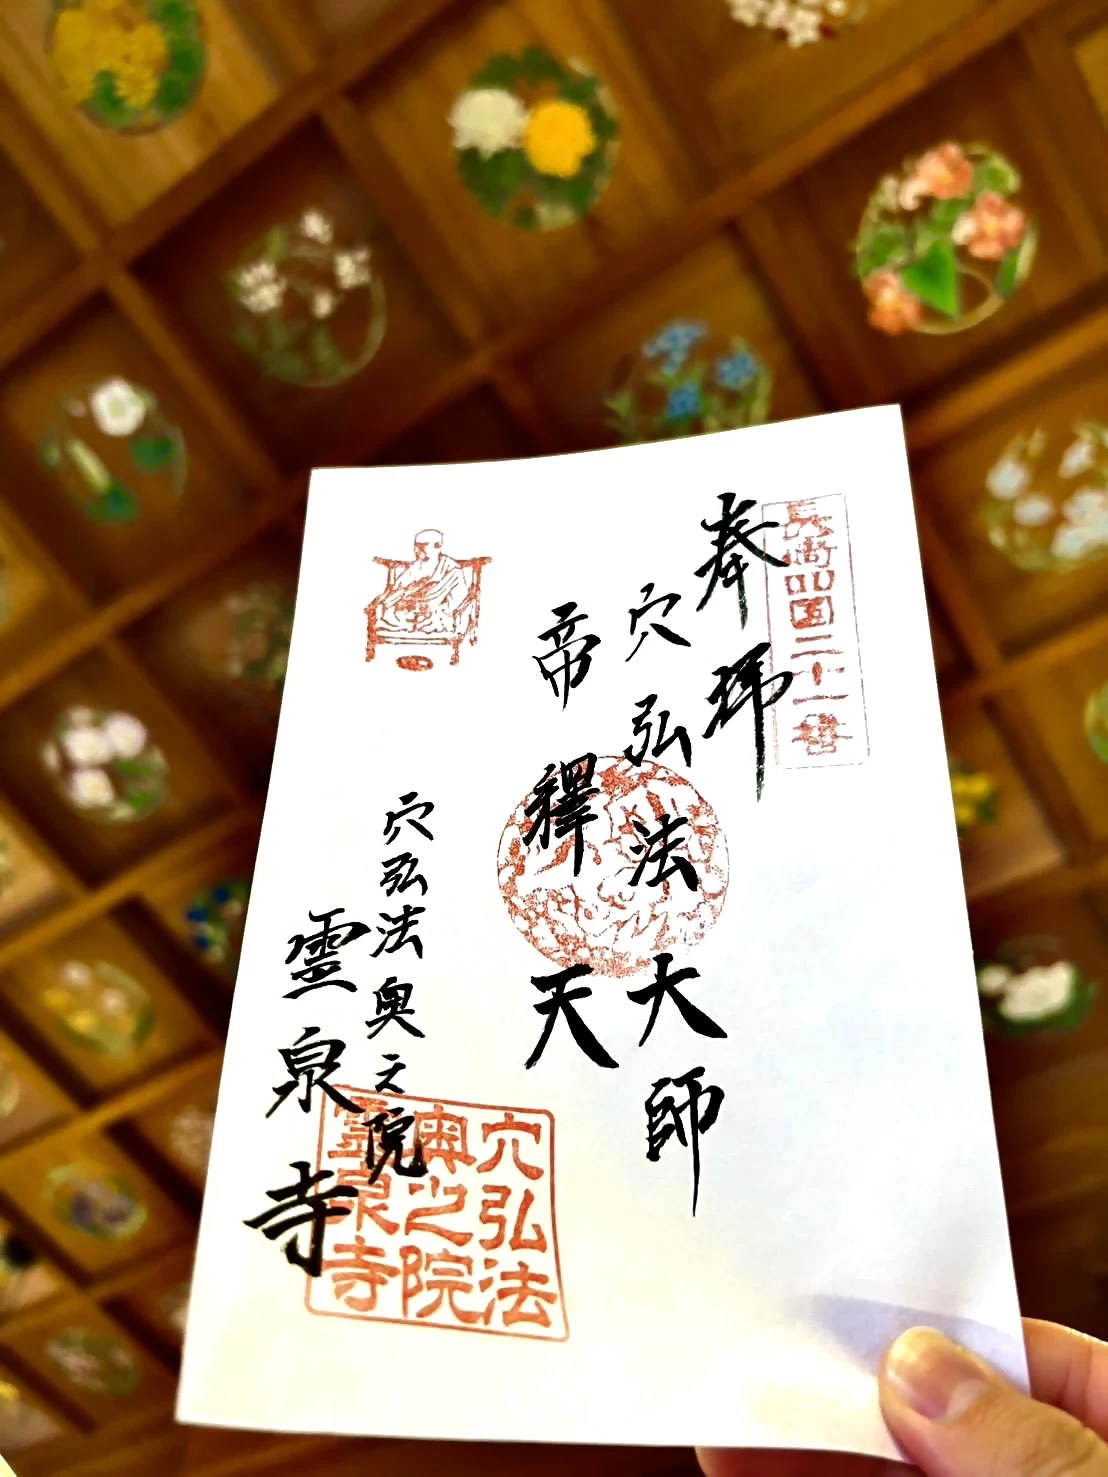 長崎四国二十一番
奉拝
穴弘法大師
帝釋天
穴弘法奥之院
霊泉寺
穴弘法
奥之院
霊泉寺